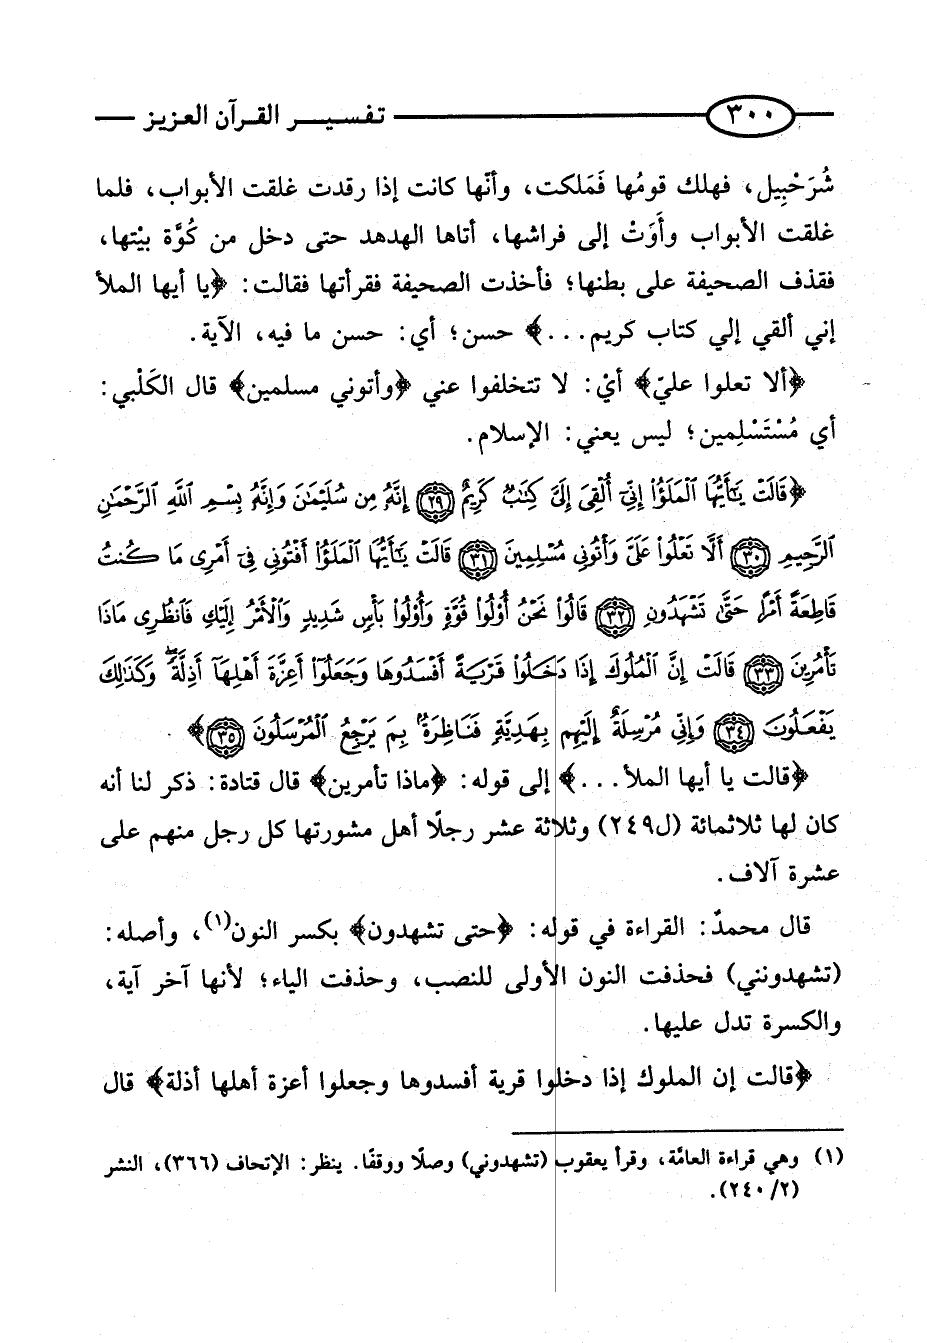 ٣٠٠ تفسير القرآن العزيز
شُرَحْبِيل، فهلك قومُها فَمَلكت، وأنّها كانت إذا رقدت غلقت الأبواب، فلما
غلقت الأبواب وأَوَتْ إلى فراشها، أتاها الهدهد حتى دخل من كُوَّة بيْتها،
فقذف الصحيفة على بطنها؛ فأخذت الصحيفة فقرأتها فقالت: ﴿يا أيها الملأ
إني ألقي إلي كتاب كريم...﴾ حسن؛ أي: حسن ما فيه، الآية.
﴿ألا تعلوا عليّ﴾ أيْ: لا تتخلفوا عني ﴿وأتوني مسلمين﴾ قال الكَلْبي:
أي مُسْتَسْلِمين؛ ليس يعني: الإسلام.
﴿قَالَتْ يَٰٓأَيُّهَا ٱلْمَلَؤُا۟ إِنِّىٓ أُلْقِىَ إِلَىَّ كِتَٰبٌ كَرِيمٌ ٢٩ إِنَّهُۥ مِن سُلَيْمَٰنَ وَإِنَّهُۥ بِسْمِ ٱللَّهِ ٱلرَّحْمَٰنِ
ٱلرَّحِيمِ ٣٠ أَلَّا تَعْلُوا۟ عَلَىَّ وَأْتُونِى مُسْلِمِينَ ٣١ قَالَتْ يَٰٓأَيُّهَا ٱلْمَلَؤُا۟ أَفْتُونِى فِىٓ أَمْرِى مَا كُنتُ
قَاطِعَةً أَمْرًا حَتَّىٰ تَشْهَدُونِ ٣٢ قَالُوا۟ نَحْنُ أُو۟لُوا۟ قُوَّةٍ وَأُو۟لُوا۟ بَأْسٍ شَدِيدٍ وَٱلْأَمْرُ إِلَيْكِ فَٱنظُرِى مَاذَا
تَأْمُرِينَ ٣٣ قَالَتْ إِنَّ ٱلْمُلُوكَ إِذَا دَخَلُوا۟ قَرْيَةً أَفْسَدُوهَا وَجَعَلُوٓا۟ أَعِزَّةَ أَهْلِهَآ أَذِلَّةً ۖ وَكَذَٰلِكَ
يَفْعَلُونَ ٣٤ وَإِنِّى مُرْسِلَةٌ إِلَيْهِم بِهَدِيَّةٍ فَنَاظِرَةٌۢ بِمَ يَرْجِعُ ٱلْمُرْسَلُونَ ٣٥﴾.
﴿قالت يا أيها الملأ...﴾ إلى قوله: ﴿ماذا تأمرين﴾ قال قتادة: ذكر لنا أنه
كان لها ثلاثمائة (ل٢٤٩) وثلاثة عشر رجلًا أهل مشورتها كل رجل منهم على
عشرة آلاف.
قال محمدٌ: القراءة في قوله: ﴿حتى تشهدون﴾ بكسر النون(١)، وأصله:
(تشهدونني) فحذفت النون الأولى للنصب، وحذفت الياء؛ لأنها آخر آية،
والكسرة تدل عليها.
﴿قالت إن الملوك إذا دخلوا قرية أفسدوها وجعلوا أعزة أهلها أذلة﴾ قال
(١) وهي قراءة العامَّة، وقرأ يعقوب (تشهدوني) وصلًا ووقفًا. ينظر: الإتحاف (٣٦٦)، النشر
(٢/ ٢٤٠).